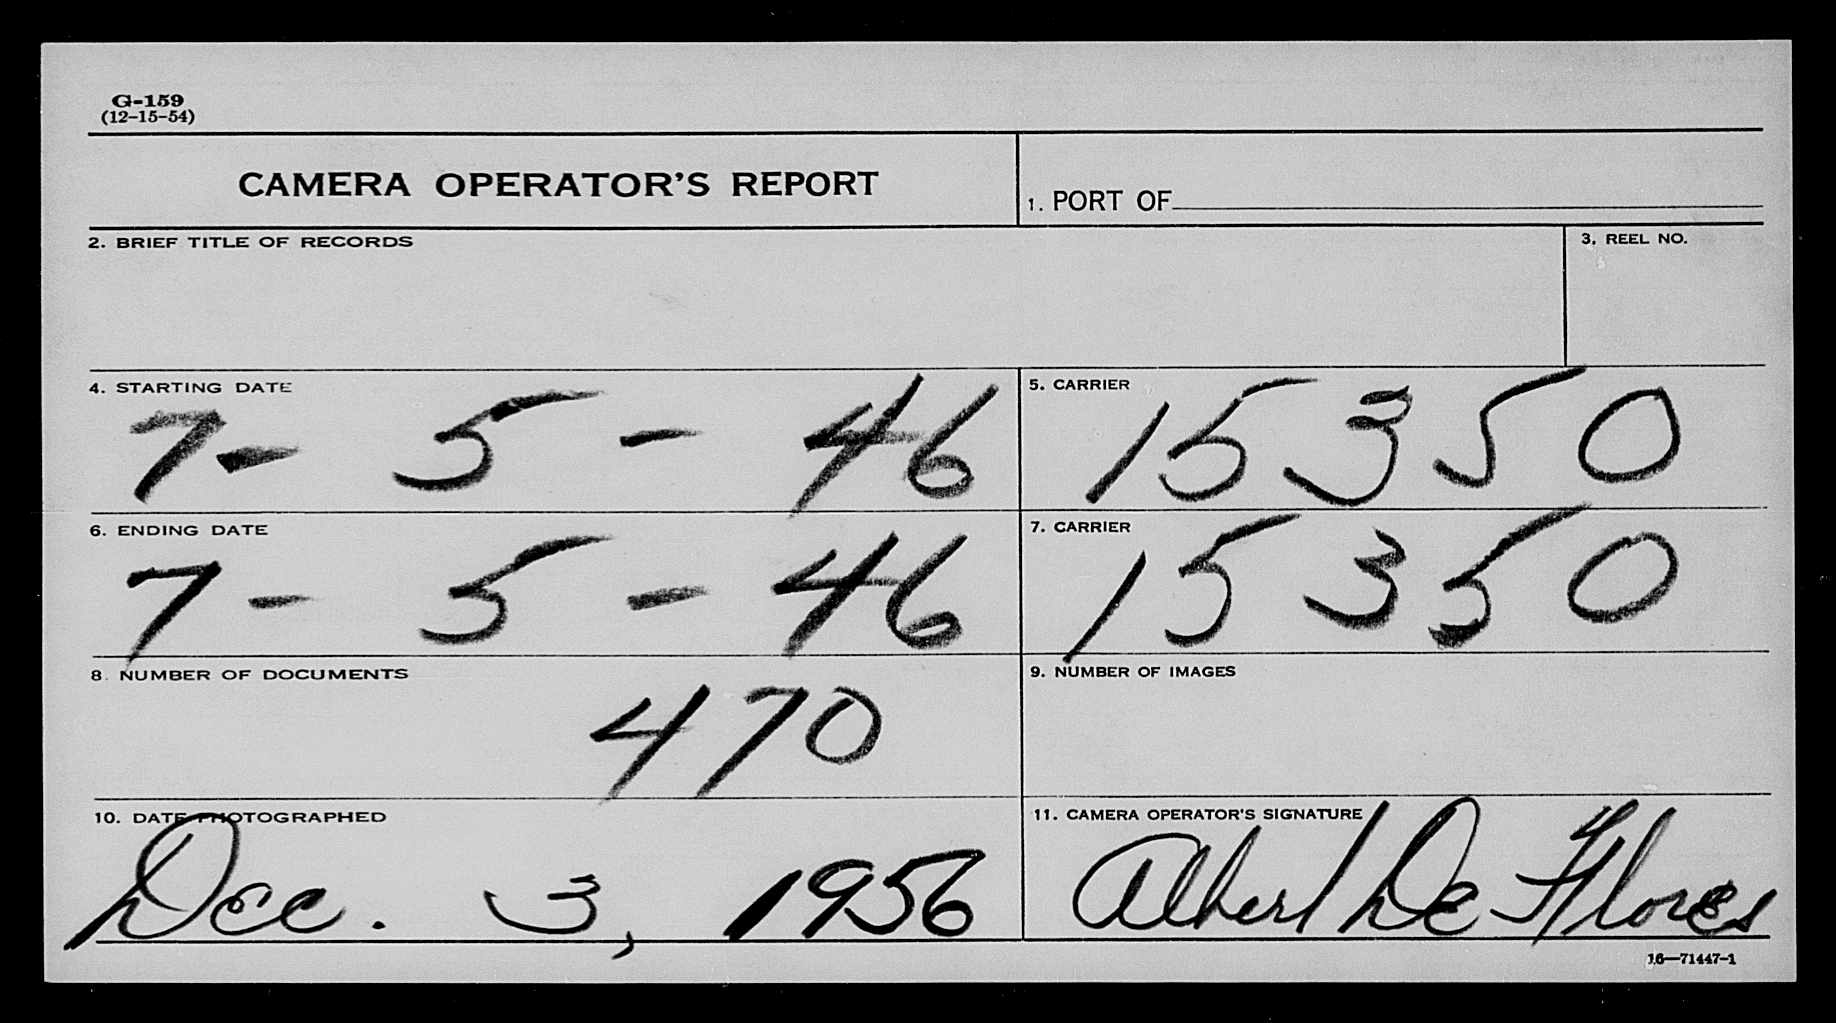 G-159
(12-15-54)
CAMERA OPERATOR'S REPORT
1. PORT OF
2. BRIEF TITLE OF RECORDS
3. REEL NO.
4. STARTING DATE
7- 5 - 46
5. CARRIER
15350
6. ENDING DATE
7 - 5 - 46
7. CARRIER
15350
8. NUMBER OF DOCUMENTS
470
9. NUMBER OF IMAGES
10. DATE PHOTOGRAPHED
Dec. 3, 1956
11. CAMERA OPERATOR'S SIGNATURE
Albert De Flores
16—71447-1